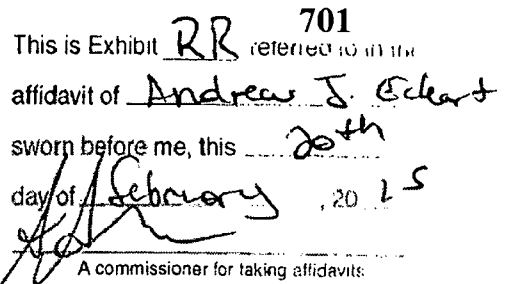 701
This is Exhibit RR referred to in the
affidavit of Andrew J. Eckart
sworn before me, this 20th
day of February, 2015
A commissioner for taking affidavits